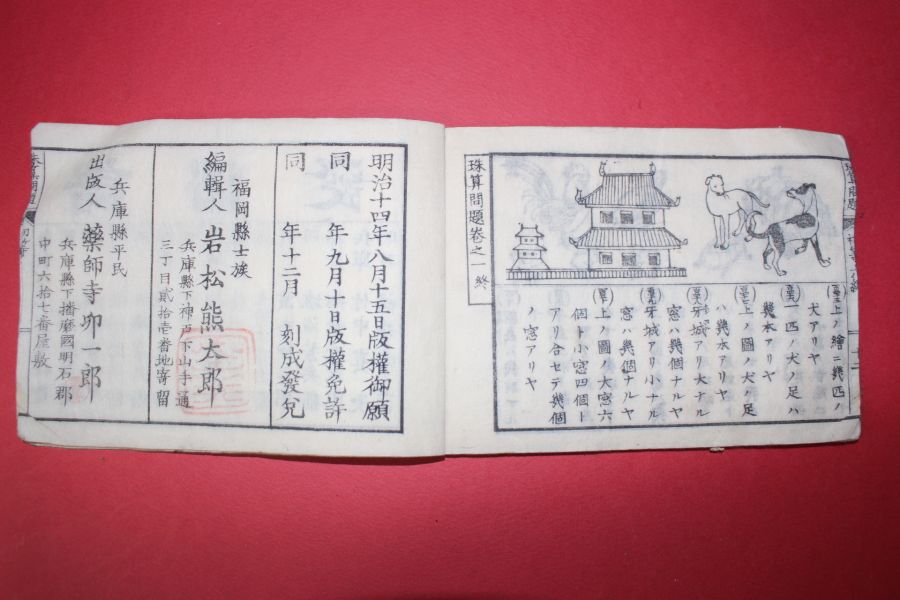 上ノ繪ニ幾匹ノ
犬アリヤ
一匹ノ犬ノ足ハ
幾本アリヤ
上ノ圖ノ犬ノ足
ハ幾本アリヤ
牙城アリ大ナル
窓ハ幾個ナルヤ
牙城アリ小ナル
窓ハ幾個ナルヤ
上ノ圖ノ大窓六
個ト小窓四個ト
アリ合セテ幾個
ノ窓アリヤ
珠算問題卷之一 終
明治十四年八月十五日版權御願
同 年九月十日版權免許
同 年十二月 刻成發兌
福岡縣士族
編輯人 岩松熊太郎
兵庫縣下神戸下山手通
三丁目貳拾壱番地寄留
兵庫縣平民
出版人 藥師寺卯一郎
兵庫縣下播磨國明石郡
中町六拾七番屋敷